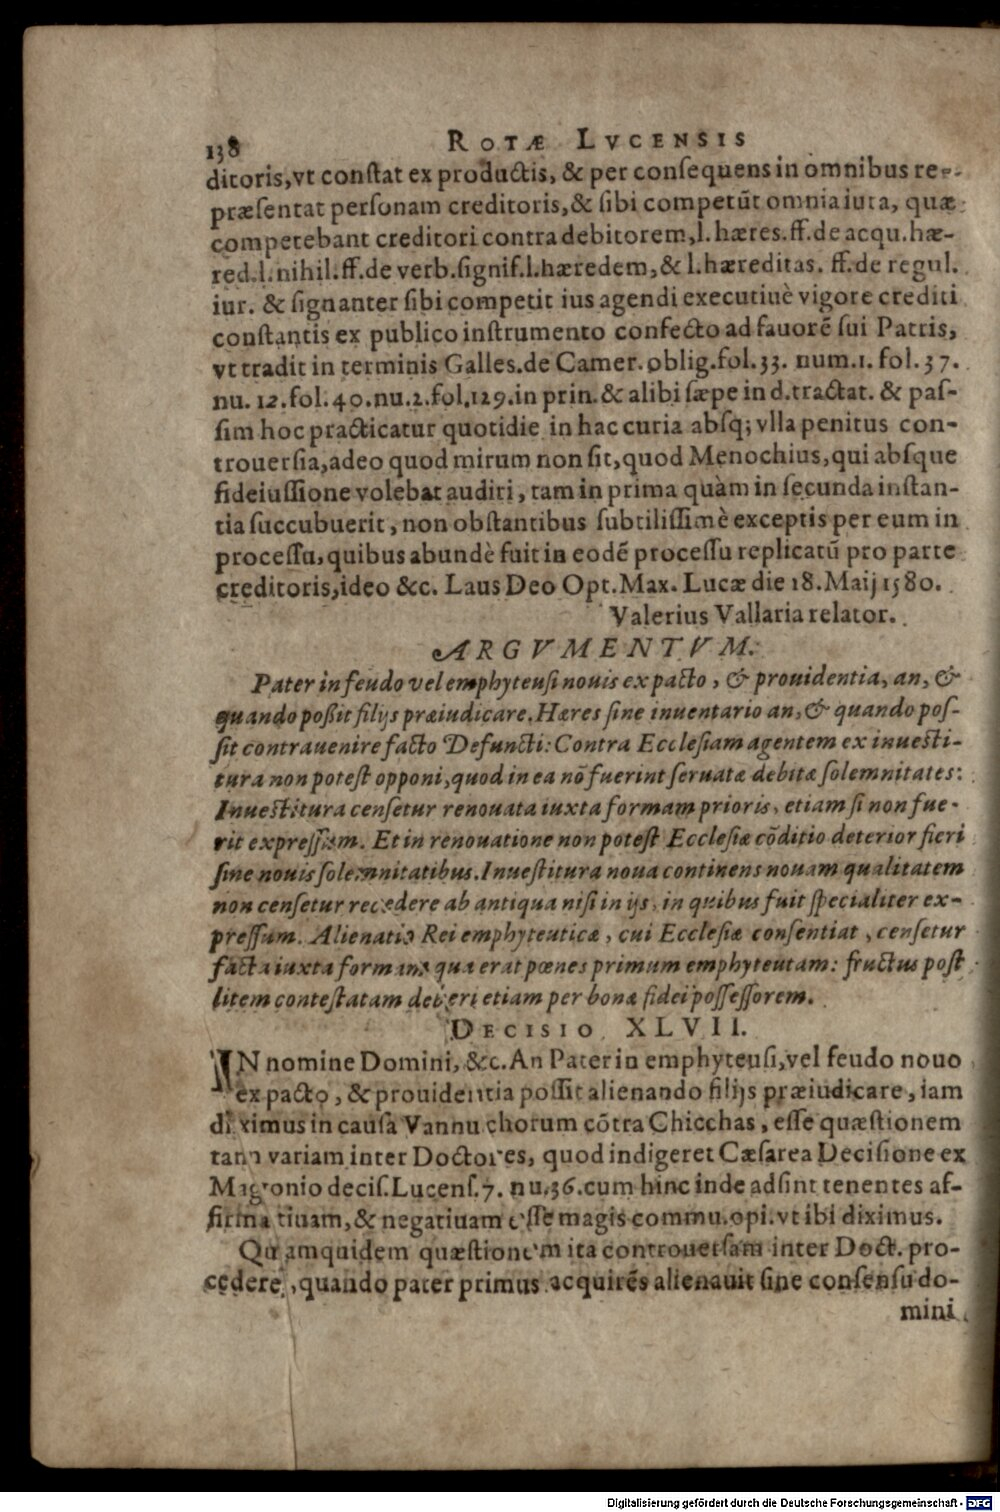 138 ROTÆ LVCENSIS
ditoris, vt constat ex productis, & per consequens in omnibus re-
præsentat personam creditoris, & sibi competũt omnia iura, quæ
competebant creditori contra debitorem, l. hæres. ff. de acqu. hæ-
red. l. nihil. ff. de verb. signif. l. hæredem, & l. hæreditas. ff. de regul.
iur. & signanter sibi competit ius agendi executiuè vigore crediti
constantis ex publico instrumento confecto ad fauorẽ sui Patris,
vt tradit in terminis Galles. de Camer. oblig. fol. 33. num. 1. fol. 37.
nu. 12. fol. 40. nu. 2. fol. 129. in prin. & alibi sæpe in d. tractat. & pas-
sim hoc practicatur quotidie in hac curia absq; vlla penitus con-
trouersia, adeo quod mirum non sit, quod Menochius, qui absque
fideiussione volebat audiri, tam in prima quàm in secunda instan-
tia succubuerit, non obstantibus subtilissimè exceptis per eum in
processu, quibus abundè fuit in eodẽ processu replicatũ pro parte
creditoris, ideo &c. Laus Deo Opt. Max. Lucæ die 18. Maij 1580.
Valerius Vallaria relator.
ARGVMENTVM.
Pater in feudo vel emphyteusi nouis ex pacto, & prouidentia, an, &
quando possit filijs præiudicare. Hæres sine inuentario an, & quando pos-
sit contrauenire facto Defuncti: Contra Ecclesiam agentem ex inuesti-
tura non potest opponi, quod in ea nõ fuerint seruatæ debitæ solemnitates:
Inuestitura censetur renouata iuxta formam prioris, etiam si non fue-
rit expressum. Et in renouatione non potest Ecclesiæ cõditio deterior fieri
sine nouis solemnitatibus. Inuestitura noua continens nouam qualitatem
non censetur recedere ab antiqua nisi in ijs, in quibus fuit specialiter ex-
pressum. Alienatio Rei emphyteuticæ, cui Ecclesiæ consentiat, censetur
facta iuxta formam quæ erat pœnes primum emphyteutam: fructus post
litem contestatam deberi etiam per bonæ fidei possessorem.
DECISIO XLVII.
IN nomine Domini, &c. An Pater in emphyteusi, vel feudo nouo
ex pacto, & prouidentia possit alienando filijs præiudicare, iam
diximus in causa Vannuchorum cõtra Chicchas, esse quæstionem
tam variam inter Doctores, quod indigeret Cæsarea Decisione ex
Magonio decis. Lucens. 7. nu. 36. cum hinc inde adsint tenentes af-
firmatiuam, & negatiuam esse magis commu. opi. vt ibi diximus.
Quamquidem quæstionem ita controuersam inter Doct. pro-
cedere, quando pater primus acquirẽs alienauit sine consensu do-
mini
Digitalisierung gefördert durch die Deutsche Forschungsgemeinschaft - DFG